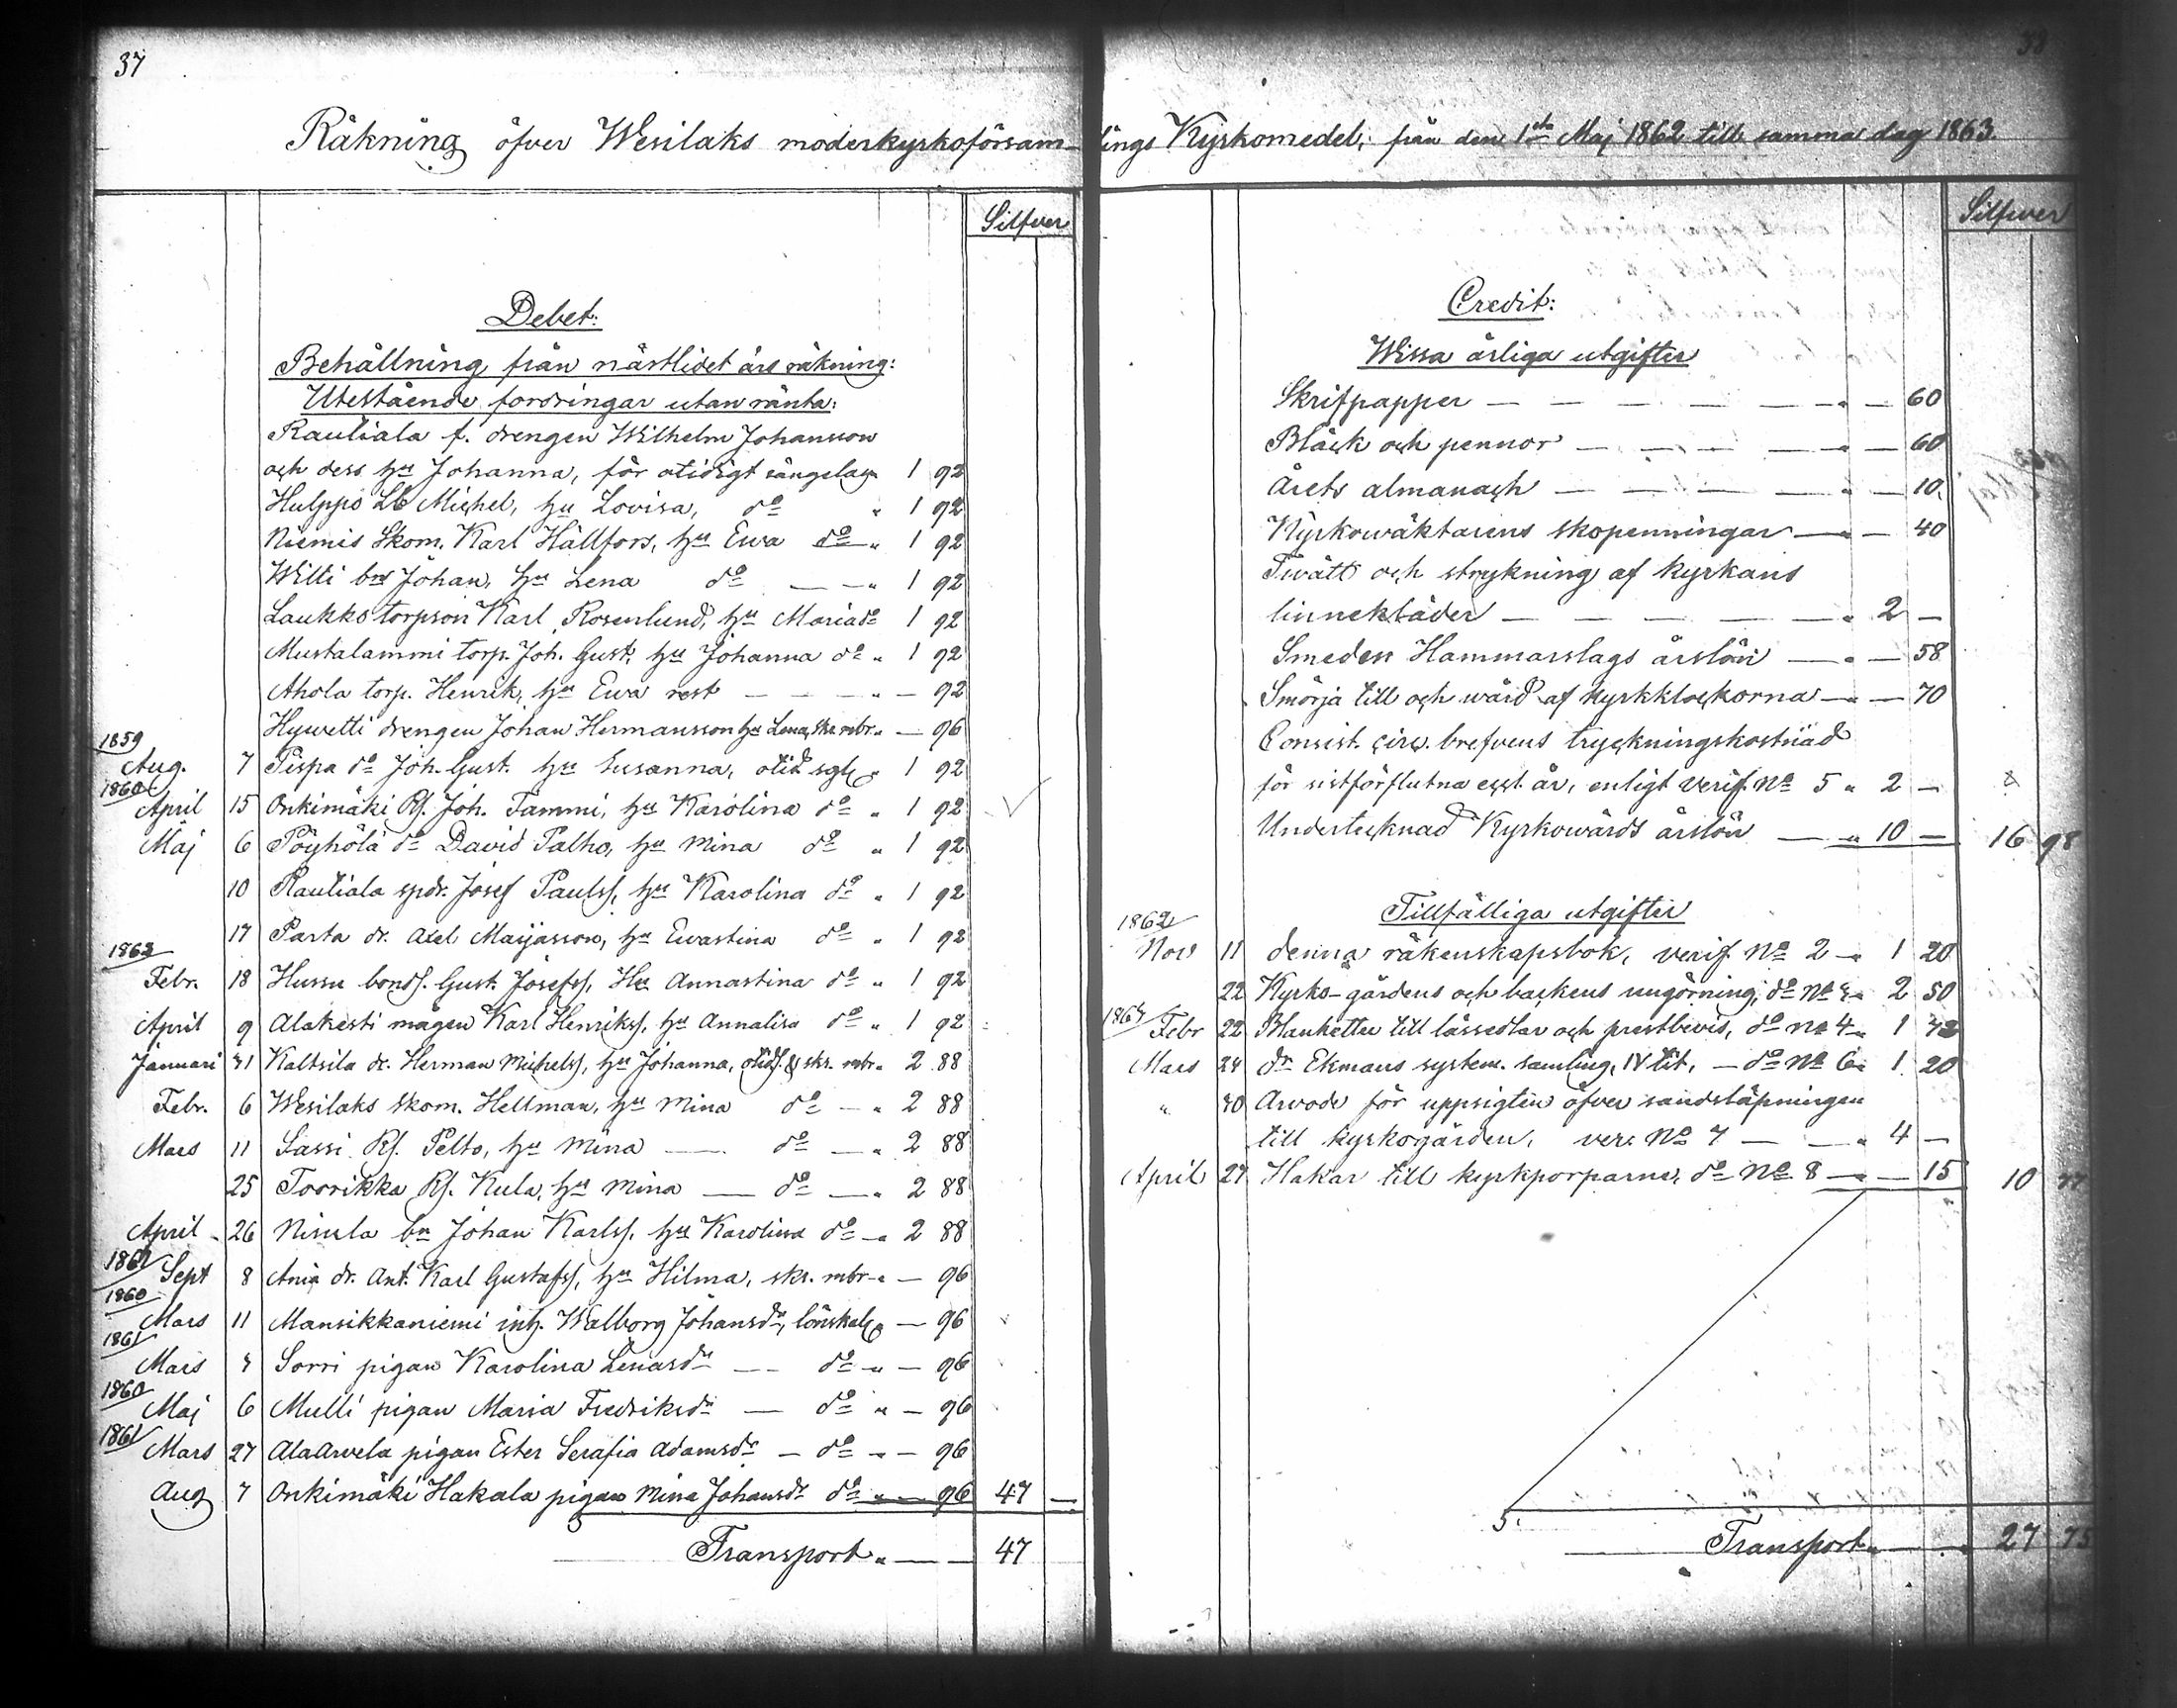 37
38
Räkning öfver Wesilaks moderkyrkoförsamlings Kyrkomedel, från den 1sta Maj 1862 till samma dag 1863
Silfver
Debet:
Behållning från nästlidet års räkning:
Utestående fordringar utan ränta:
Rautiala f. drengen Wilhelm Johansson
och dess hu Johanna, för otidigt sängelag " 1 92
Hulppo Lb Michel, hu Lovisa, do " 1 92
Niemis Skom. Karl Hällfors, hu Ewa do " 1 92
Witti bnd Johan, hu Lena do — — " 1 92
Laukko torpson Karl Rosenlund, hu Maria do 1 92
Mustalammi torp. Joh. Gust. hu Johanna do " 1 92
Ahola torp. Henrik, hu Ewa rest — — — " — 92
Hywetti drengen Johan Hermansson hu Lena, skr. mbr " — 96
1859
Aug. 7 Pispa do Joh. Gust. hu Susanna, otid sgl " 1 92
1860
April 15 Onkimäki Rf. Joh. Tammi, hu Karolina do " 1 92
Maj 6 Pöyhölä do David Palho, hu Mina do " 1 92
10 Rautiala spdr. Josef Paulss, hu Karolina do " 1 92
17 Parta dr. Axel Maijasson, hu Ewastina do " 1 92
1862
Febr. 18 Hussu bonds. Gust. Josefss, Hu Annastina do " 1 92
April 9 Alakesti mågen Karl Henrikss, hu Annalisa do " 1 92
Januari 31 Kaltsila dr. Herman Michelss, hu Johanna, otids. & skr. mbr " 2 88
Febr. 6 Wesilaks skom. Hellman, hu Mina do — " 2 88
Mars 11 Sassi Rf. Pelto, hu Mina — do — " 2 88
25 Toorikka Rf. Kula, hu Mina — do — " 2 88
April 26 Nisula bn Johan Karlss, hu Karolina do — " 2 88
1861
Sept 8 Ania dr. Ant. Karl Gustafss, hu Hilma, skr. mbr — " — 96
1860
Mars 11 Mansikkaniemi inh. Walborg Johansdr, lönskal " — 96
1861
Mars 3 Sorri pigan Karolina Lenasdr — do — " — 96
1860
Maj 6 Mulli pigan Maria Fredriksdr — do " — 96
1861
Mars 27 Ala Arvela pigan Ester Serafia Adamsdr — do — " — 96
Aug 7 Onkimäki Hakala pigan Mina Johansdr do " — 96 47 —
Transport " — — 47
Silfwer
Credit:
Wissa årliga utgifter
Skrifpapper — — — — — — " — 60
Bläck och pennor — — — — " — 60
Årets almanach — — — — " — 10
Kyrkowäktarens skopenningar — " — 40
Twätt och strykning af kyrkans
linnekläder — — — — — " 2 —
Smeden Hammarslags årslön — " — 58
Smörja till och wård af kyrkklockorna — " — 70
Consist. circ. brefvens tryckningskostnad
för sistförflutna eccl. år, enligt verif. No 5 " 2 —
Undertecknad Kyrkowärds årslön — " 10 — 16 98
Tillfälliga utgifter
1862
Nov 11 denna räkenskapsbok, verif. No 2 — " 1 20
22 Kyrko-gårdens och backens rengörning, do No 3 " 2 50
1863
Febr 22 Blanketter till låssedlar och prestbevis, do No 4 " 1 72
Mars 24 dr Ekmans system. samling, IV tit. — do No 6 " 1 20
" 30 Arvode för uppsigten öfver sandsläpningen
till kyrkogården, ver. No 7 — — " 4 —
April 27 Hakar till kyrkporparne, do No 8 — " — 15 10 77
S.
Transport " — — " 27 75